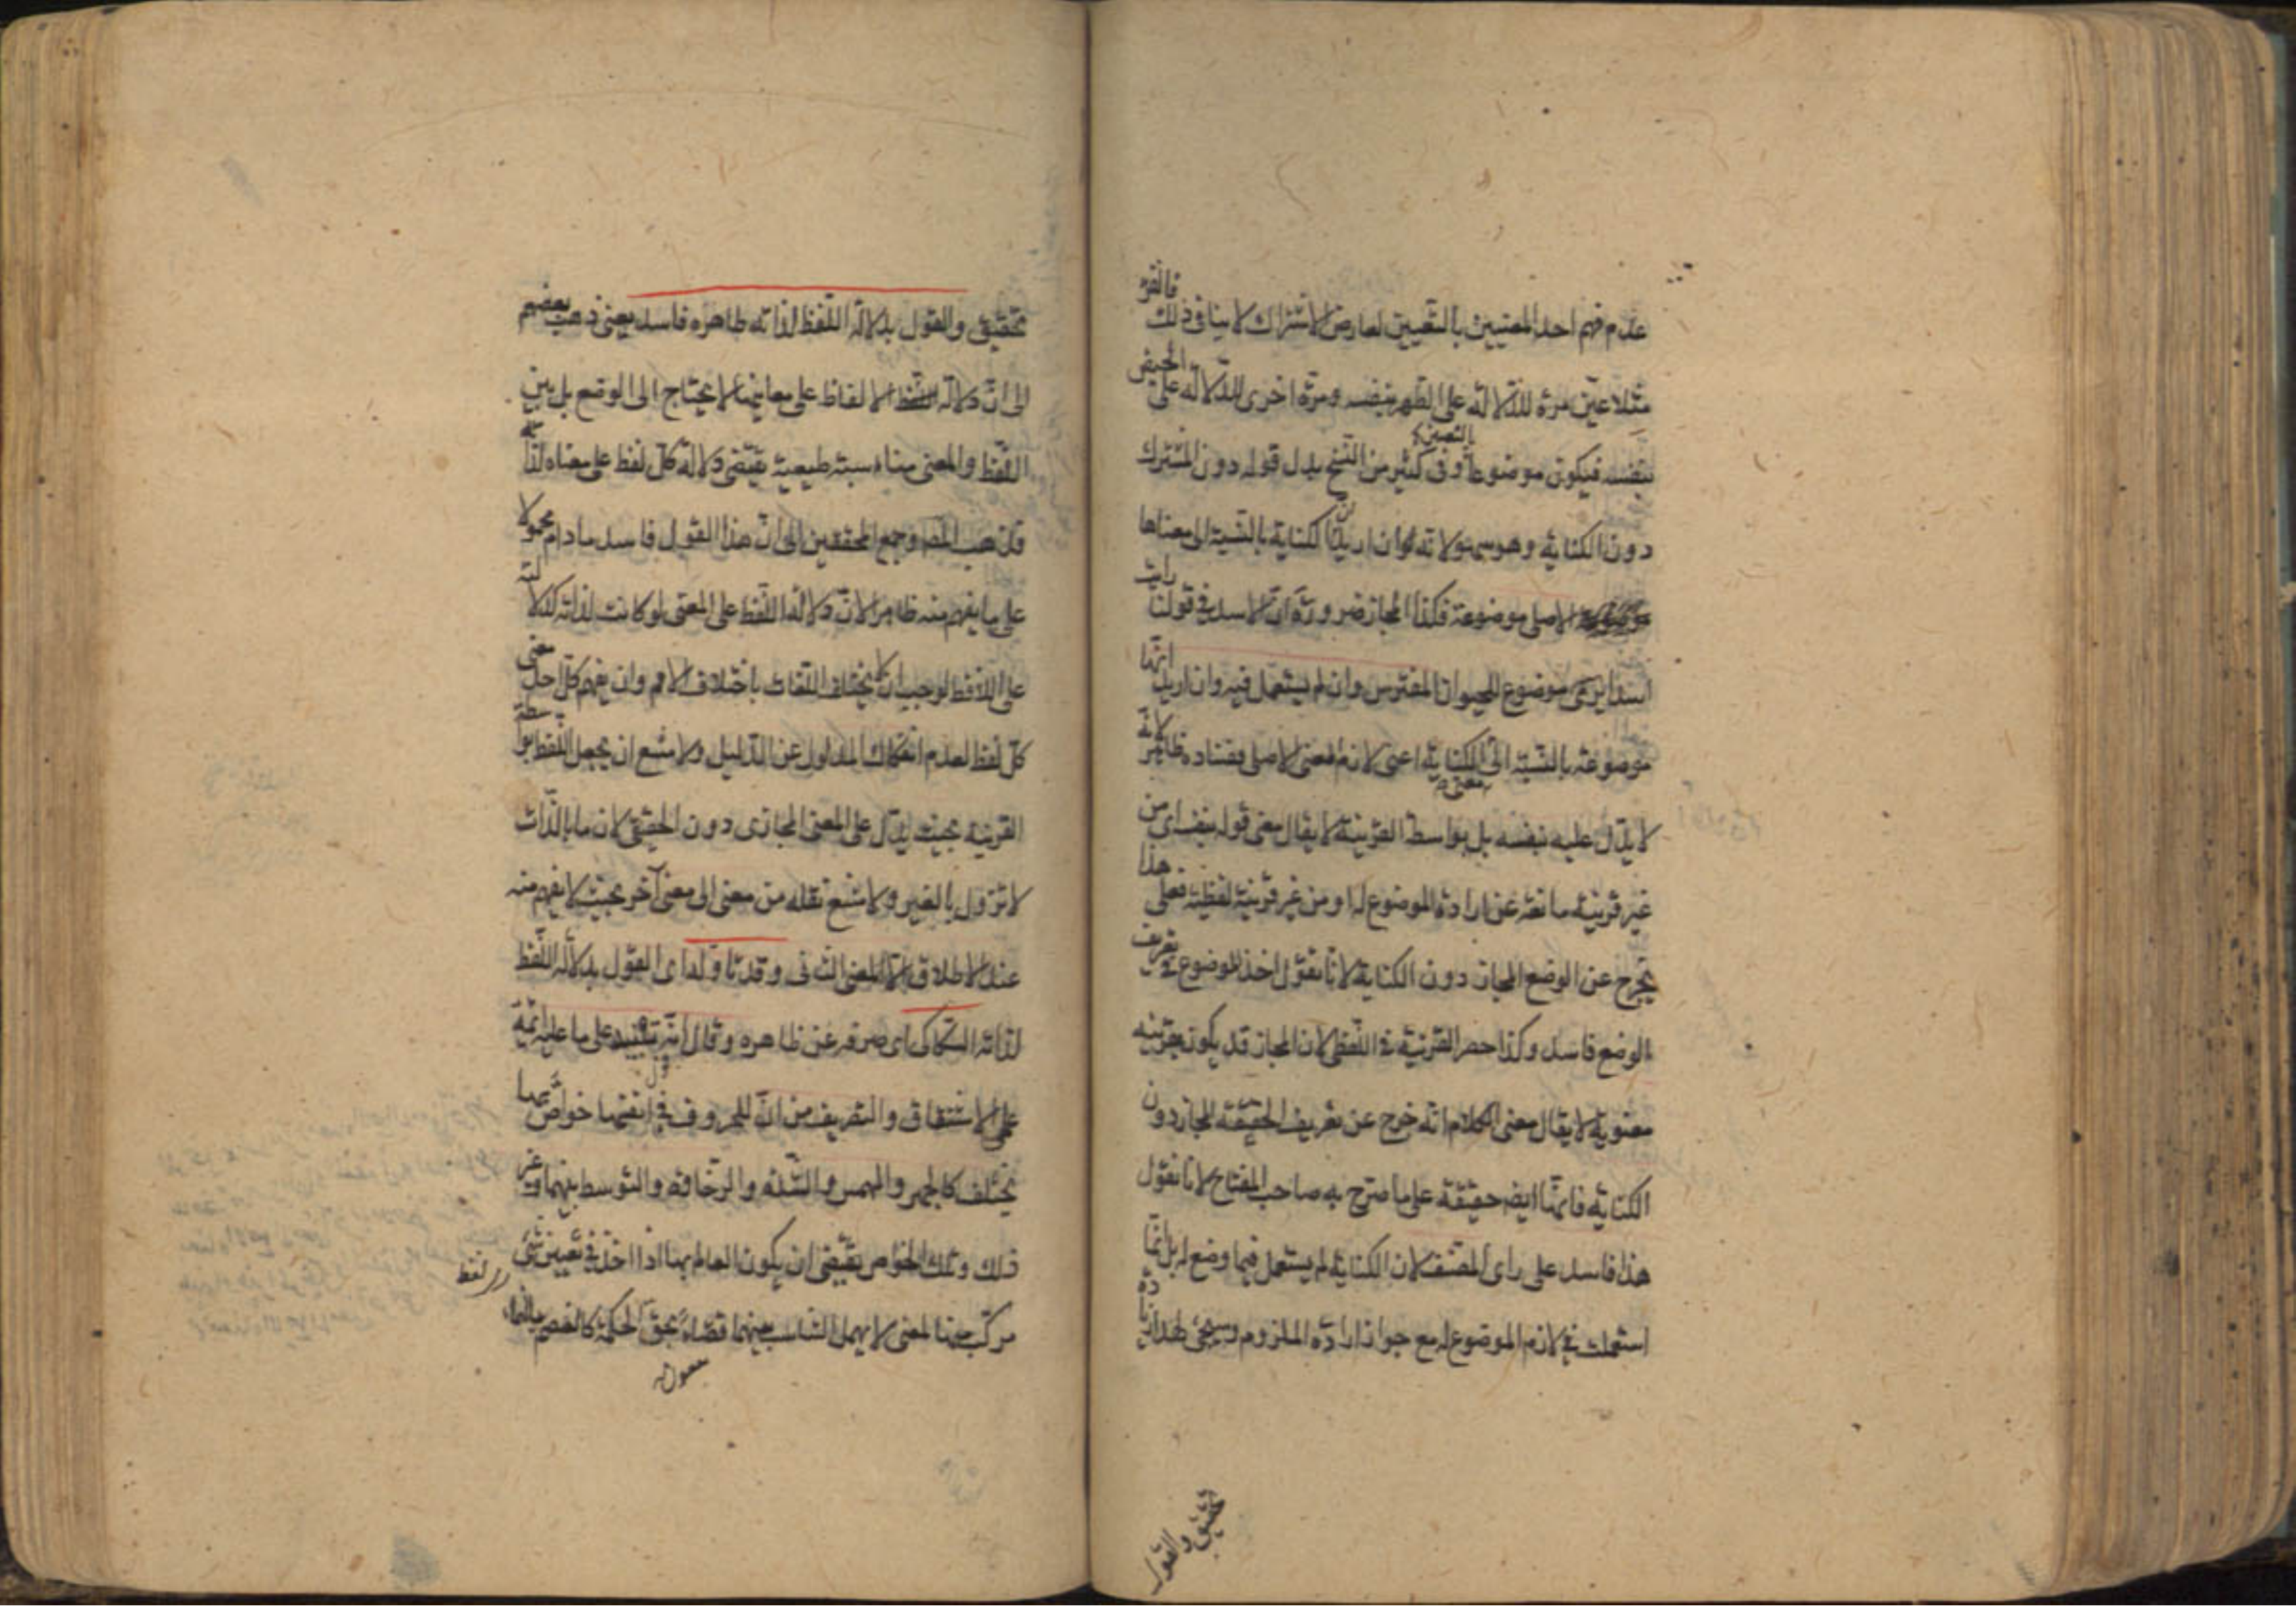 عدم فهم احد المعنيين بالتعيين لعارض الاشتراك لا ينافى ذلك فالقرء
مثلا عين مرة للدلالة على الطهر بنفسه ومرة اخرى للدلالة على الحيض
بنفسه فيكون موضوعا بالتعيين وفى كثير من النسخ بدل قوله دون المشترك
دون الكناية وهو سهو لانه ان اريد ان الكناية بالنسبة الى معناها
الاصلى موضوعة فكذا المجاز ضرورة ان الاسد فى قولنا رايت
اسدا يرمى موضوع للحيوان المفترس وان لم يستعمل فيه وان اريد انها
موضوعة بالنسبة الى معنى الكناية اعنى لازم المعنى الاصلى ففساده ظاهر لانه
لا يدل عليه بنفسه بل بواسطة القرينة لا يقال معنى قوله بنفسه اى من
غير قرينة مانعة عن ارادة الموضوع له او من غير قرينة لفظية فعلى هذا
يخرج عن الوضع المجاز دون الكناية لانا نقول اخذ الموضوع فى تعريف
الوضع فاسد وكذا حصر القرينة فى اللفظى لان المجاز قد يكون بقرينة
معنوية لا يقال معنى الكلام انه خرج عن تعريف الحقيقة المجاز دون
الكناية فانها ايضا حقيقة على ما صرح به صاحب المفتاح لانا نقول
هذا فاسد على راى المصنف لان الكناية لم يستعمل فيما وضع له بل انما
استعملت فى لازم الموضوع له مع جواز ارادة الملزوم وسيجئ لهذا زيادة
تحقيق والقول
تحقيق والقول بدلالة اللفظ لذاته ظاهره فاسد يعنى ذهب بعضهم
الى ان دلالة الالفاظ على معانيها لا يحتاج الى الوضع بل بين
اللفظ والمعنى مناسبة طبيعية يقتضى دلالة كل لفظ على معناه لذاته
فذهب المص وجميع المحققين الى ان هذا القول فاسد مادام محمولا
على ما يفهم منه ظاهرا لان دلالة اللفظ على المعنى لو كانت لذاته كدلالته
على اللافظ لوجب ان لا يختلف اللغات باختلاف الامم وان يفهم كل احد معنى
كل لفظ لعدم انفكاك المدلول عن الدليل ولامتنع ان يجعل اللفظ بواسطة
القرينة بحيث يدل على المعنى المجازى دون الحقيقى لان ما بالذات
لا تزول بالغير ولامتنع نقله من معنى الى معنى آخر بحيث لا يفهم منه
عند الاطلاق الا المعنى الثانى وقد تاوله اى القول بدلالة اللفظ
لذاته السكاكى اى صرفه عن ظاهره وقال انه تنبيه على ما عليه ائمة
علمى الاشتقاق والتصريف من ان للحروف فى انفسها خواص بها
تختلف كالجهر والهمس والشدة والرخاوة والتوسط بينهما وغير
ذلك وتلك الخواص يقتضى ان يكون العالم بها اذا اخذ فى تعيين شئ
مركب منها لمعنى لا يهمل التناسب بينهما قضاء بحق الحكمة كالفصم بالفاء